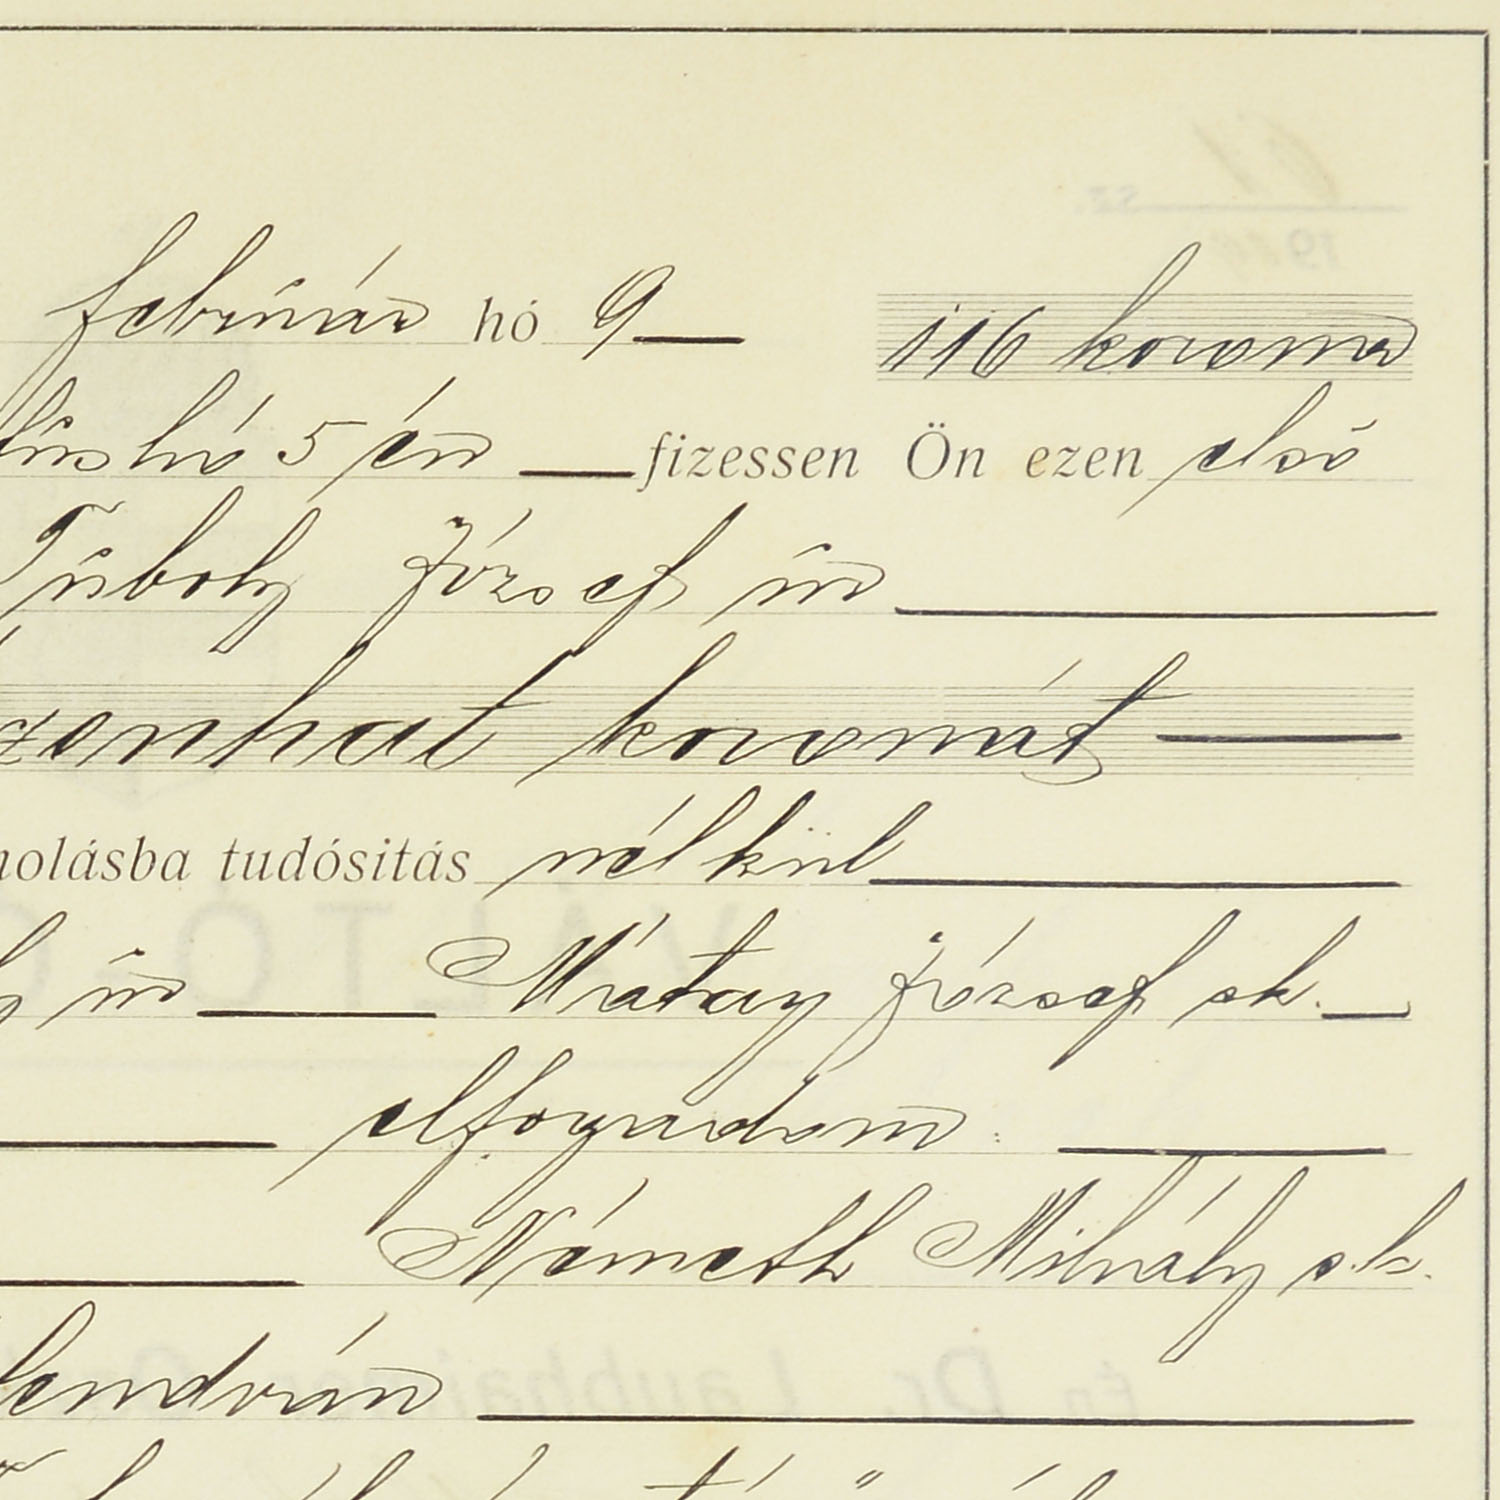 február hó 9 116 korona
hó 5 én fizessen Ön ezen első
Tuboly József úr
zenhat koronát
molásba tudósitás nélkül
úr Mátay József sk.
elfogadom.
Németh Mihály s.k.
lendván